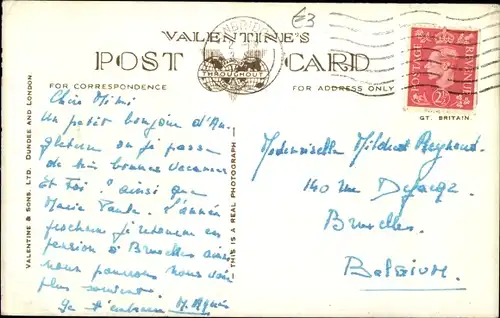 £3
VALENTINE'S
POST CARD
THROUGHOUT
FOR CORRESPONDENCE
FOR ADDRESS ONLY
POSTAGE REVENUE
2½
GT. BRITAIN
VALENTINE & SONS, LTD. DUNDEE AND LONDON
THIS IS A REAL PHOTOGRAPH
Chère Mimi
Un petit bonjour d'An-
gleterre où je passe
de très bonnes vacances
Et Toi? ainsi que
Marie Paule. L'année
prochaine je retourne en
pension à Bruxelles ainsi
nous pourrons nous voir
plus souvent.
Je t'embrasse M. Agnès
Mademoiselle Mildred Reynaud.
140 rue
Bruxelles.
Belgium.